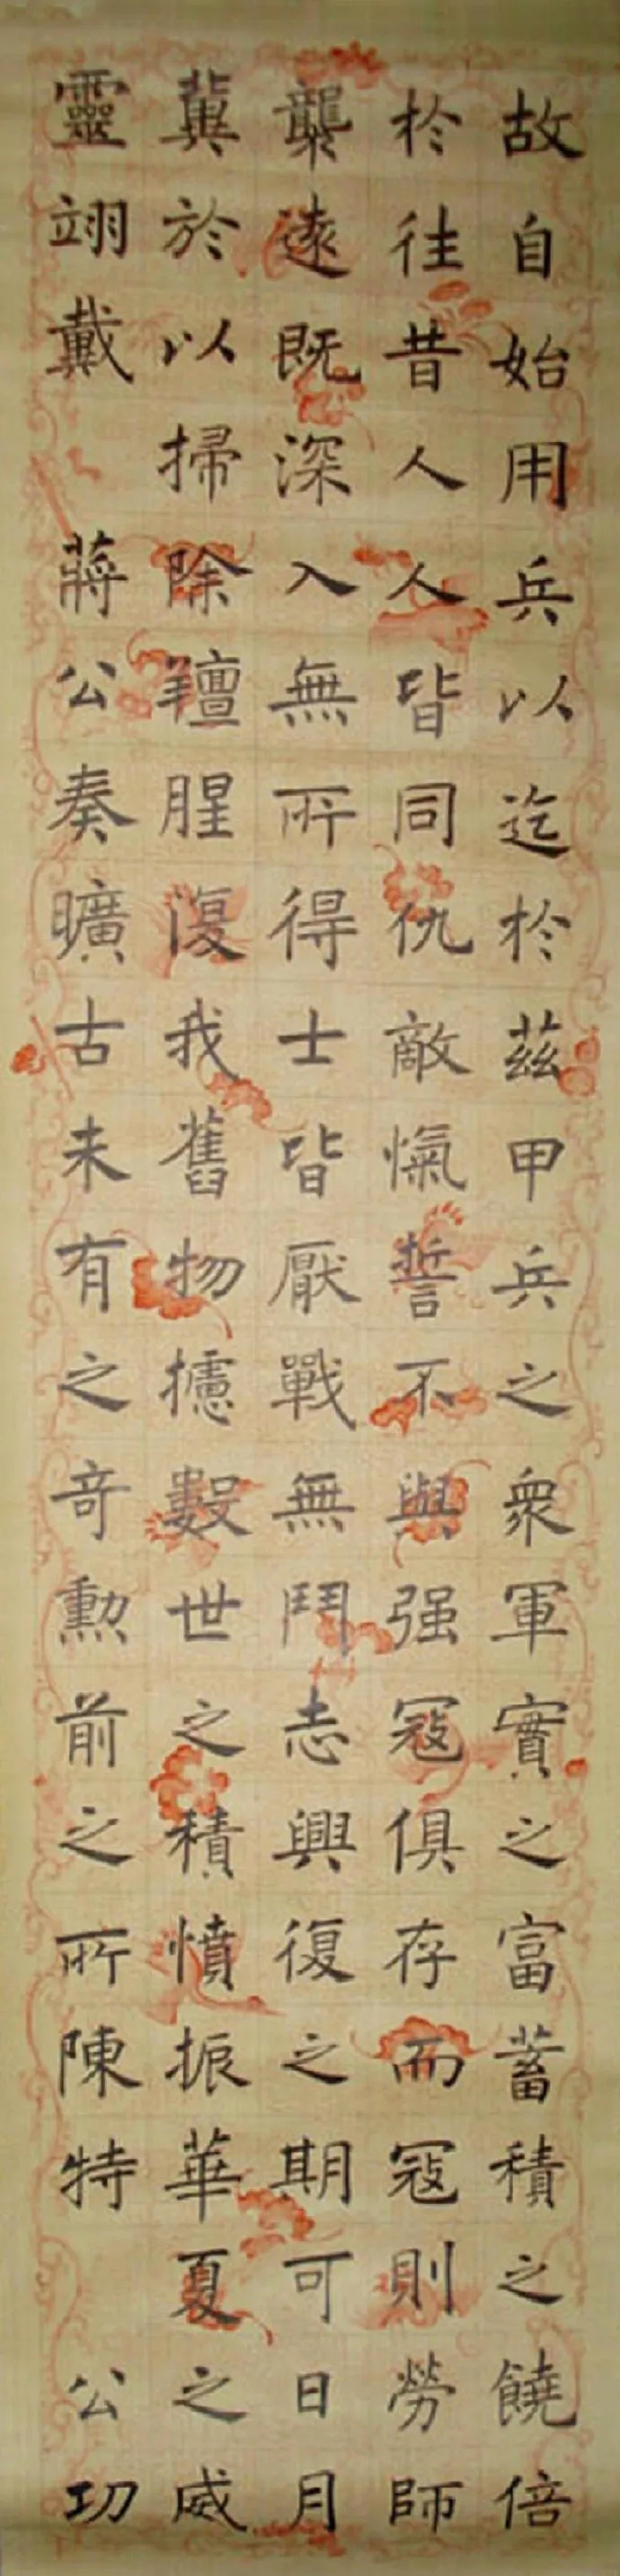 故自始用兵以迄於茲甲兵之眾軍實之富蓄積之饒倍
於往昔人人皆同仇敵愾誓不與强寇俱存而寇則勞師
襲遠既深入無所得士皆厭戰無鬥志興復之期可日月
冀於以掃除羶腥復我舊物攄數世之積憤振華夏之威
靈翊戴 蔣公奏曠古未有之奇勳前之所陳特 公功